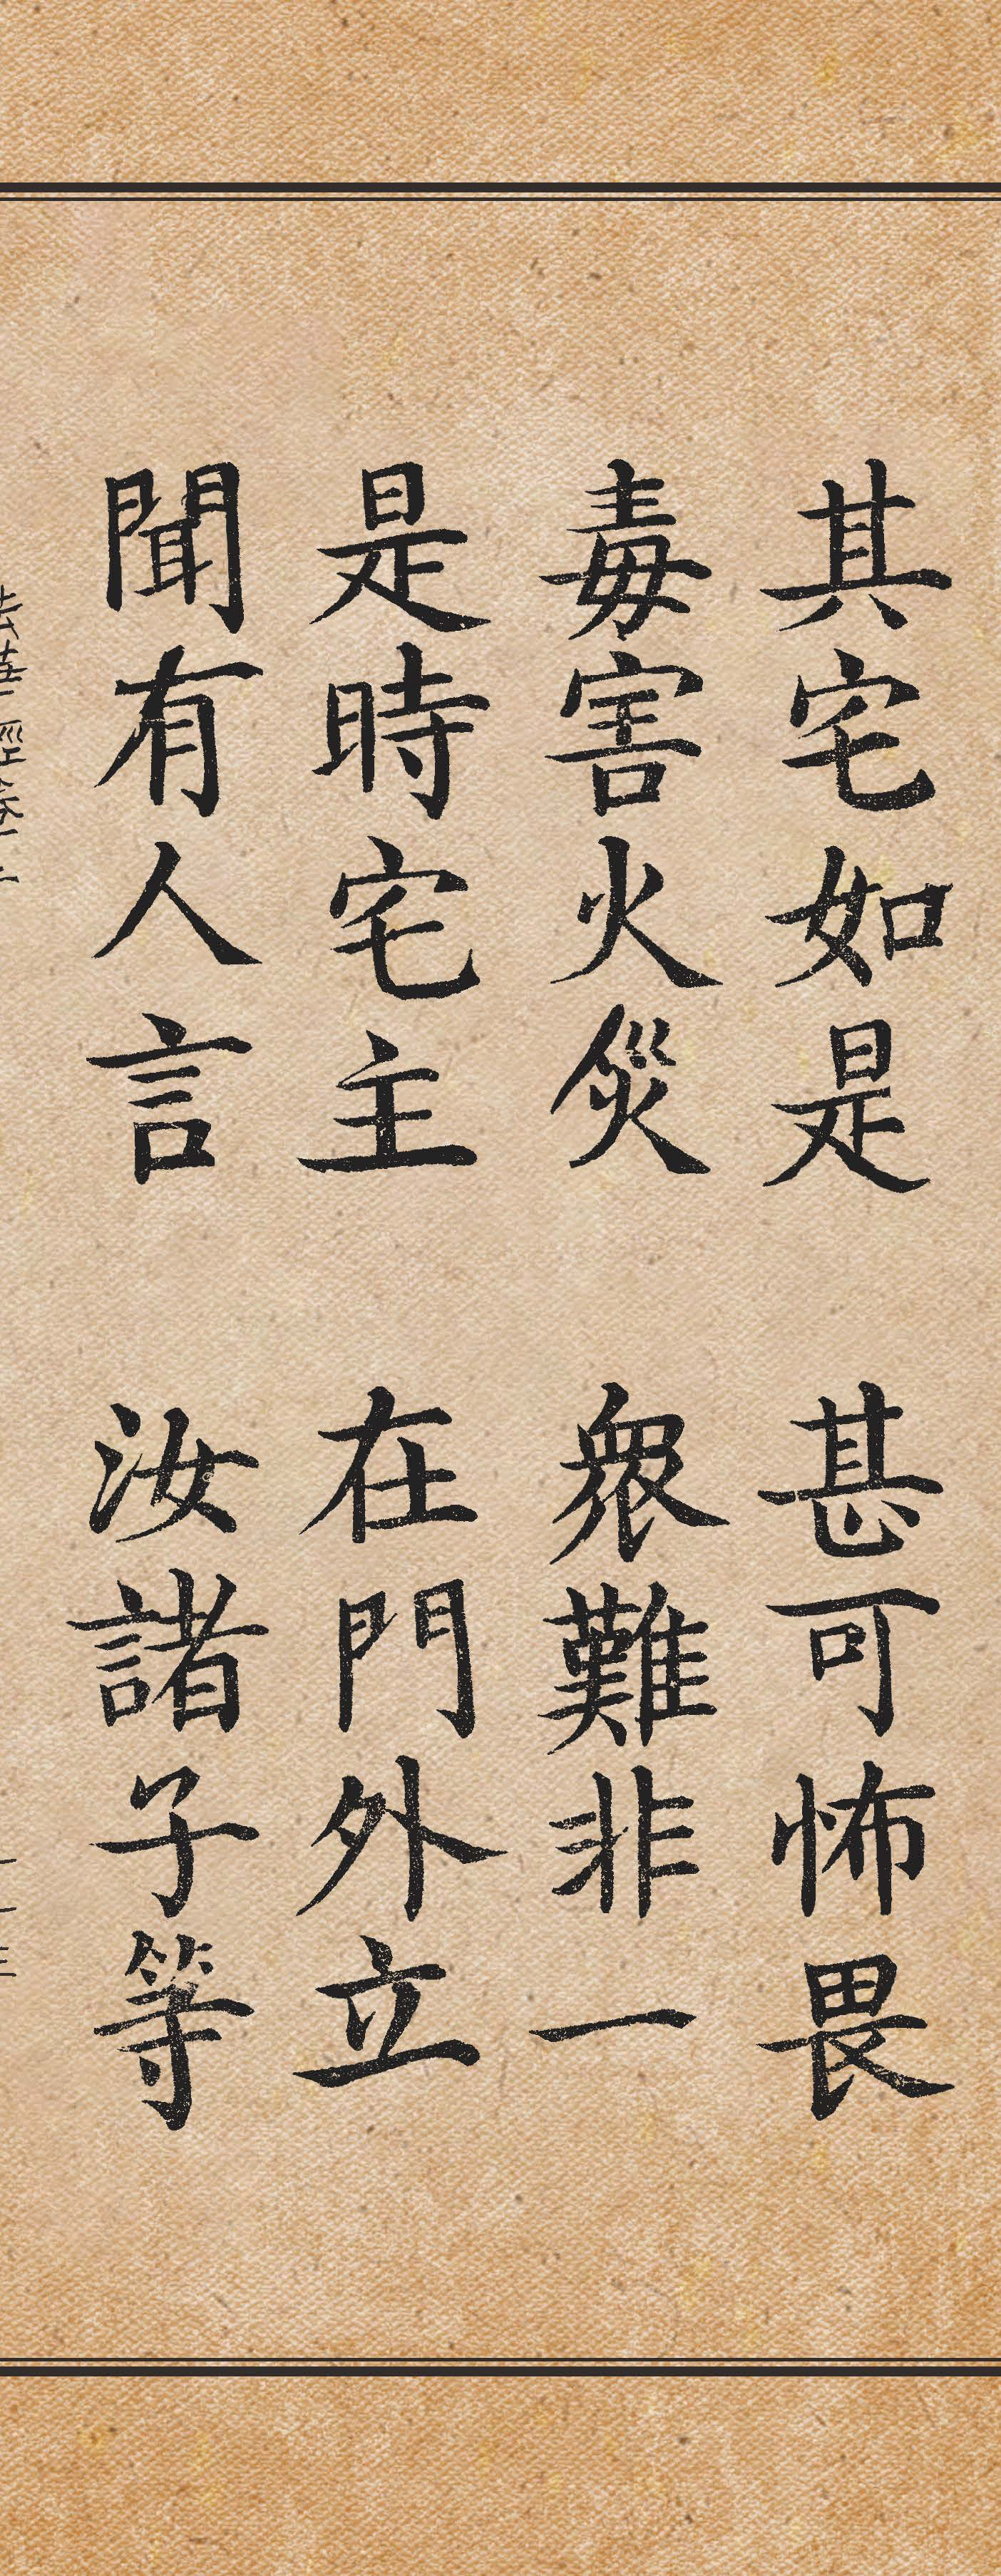 其宅如是 甚可怖畏
毒害火災 衆難非一
是時宅主 在門外立
聞有人言 汝諸子等